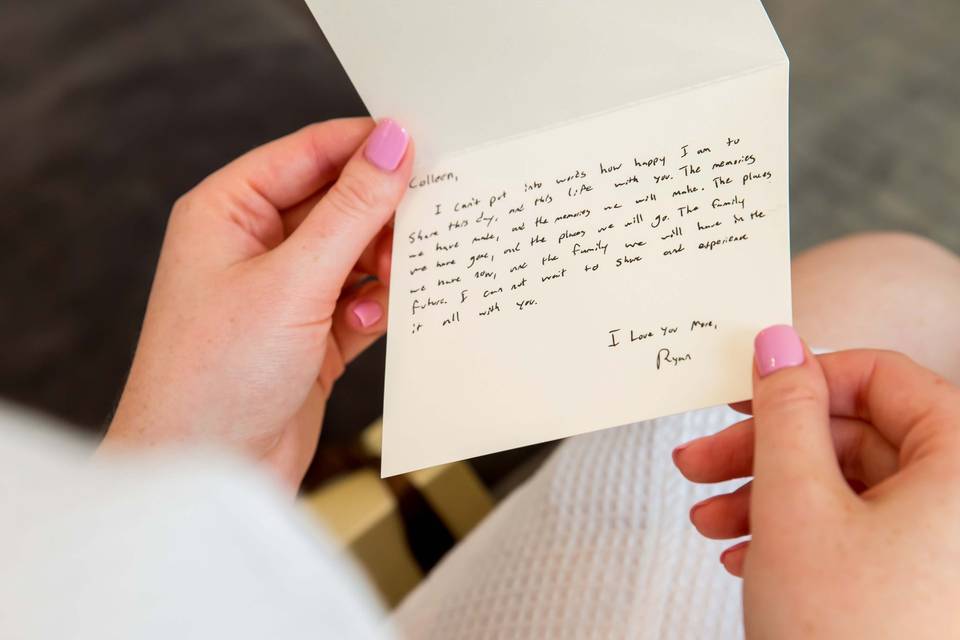 Colleen,
I can't put into words how happy I am to
share this day, and this life with you. The memories
we have made, and the memories we will make. The places
we have gone, and the places we will go. The family
we have now, and the family we will have in the
future. I can not wait to share and experience
it all with you.
I Love You More,
Ryan